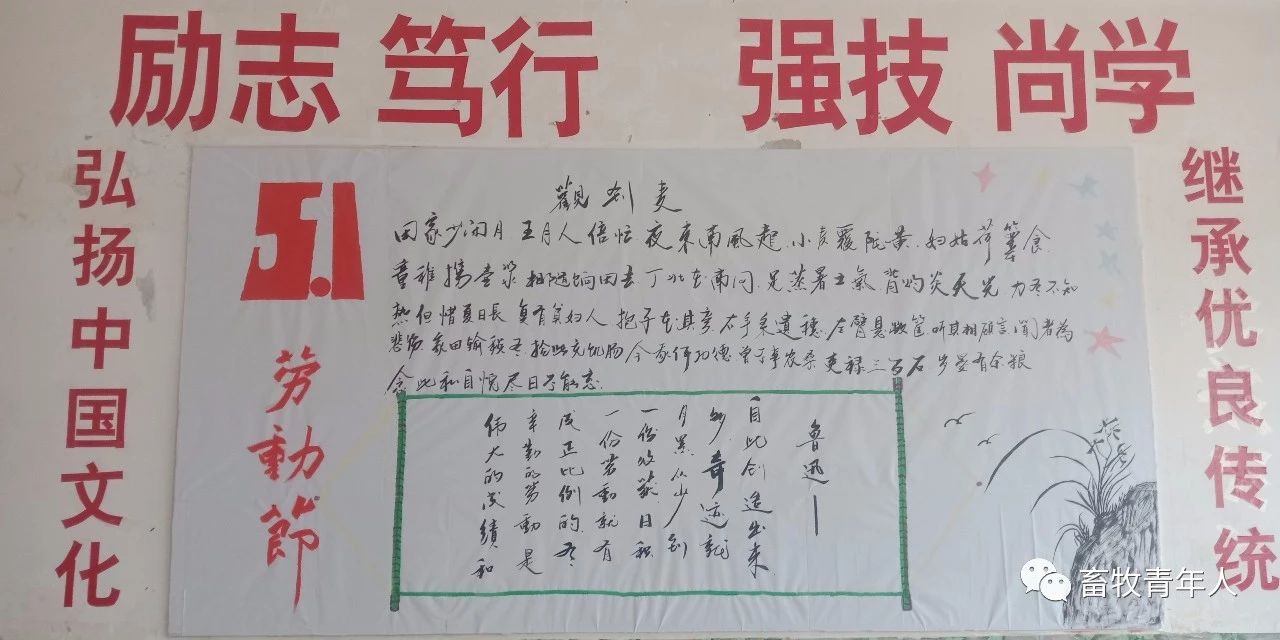 励志 笃行 强技 尚学
弘扬中国文化
5.1
劳動節
觀刈麦
田家少闲月 五月人倍忙 夜来南風起 小麦覆陇黄 妇姑荷簞食
童稚携壶浆 相随饷田去 丁壮在南冈 足蒸暑土氣 背灼炎天光 力尽不知
热 但惜夏日長 有贫妇人 抱子在其旁 右手秉遺穗 左臂悬敝筐 听其相顾言 闻者為
悲伤 家田输税尽 拾此充饥肠 今我何功德 曾不事农桑 吏禄三百石 岁晏有余粮
念此私自愧 尽日不能忘
伟大的成绩和
辛勤的劳動是
成正比例的,有
一份劳動就有
一份收获日积
月累从少到
多,奇迹就
自此创造出来
鲁迅——
继承优良传统
畜牧青年人